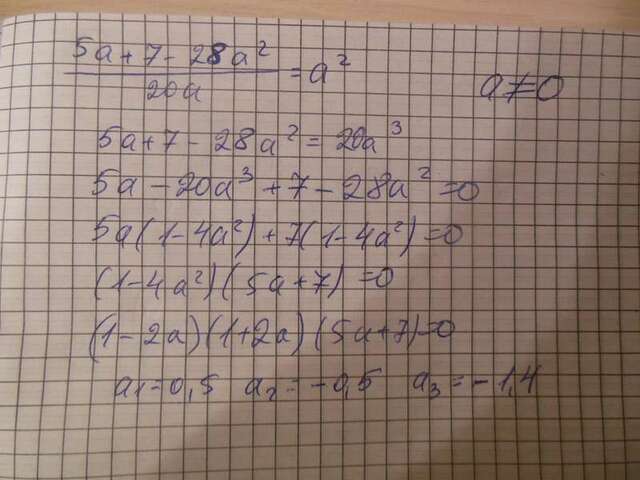 (5a+7-28a²)/20a = a² a≠0
5a+7-28a² = 20a³
5a-20a³+7-28a²=0
5a(1-4a²)+7(1-4a²)=0
(1-4a²)(5a+7)=0
(1-2a)(1+2a)(5a+7)=0
a₁=0,5 a₂=-0,5 a₃=-1,4